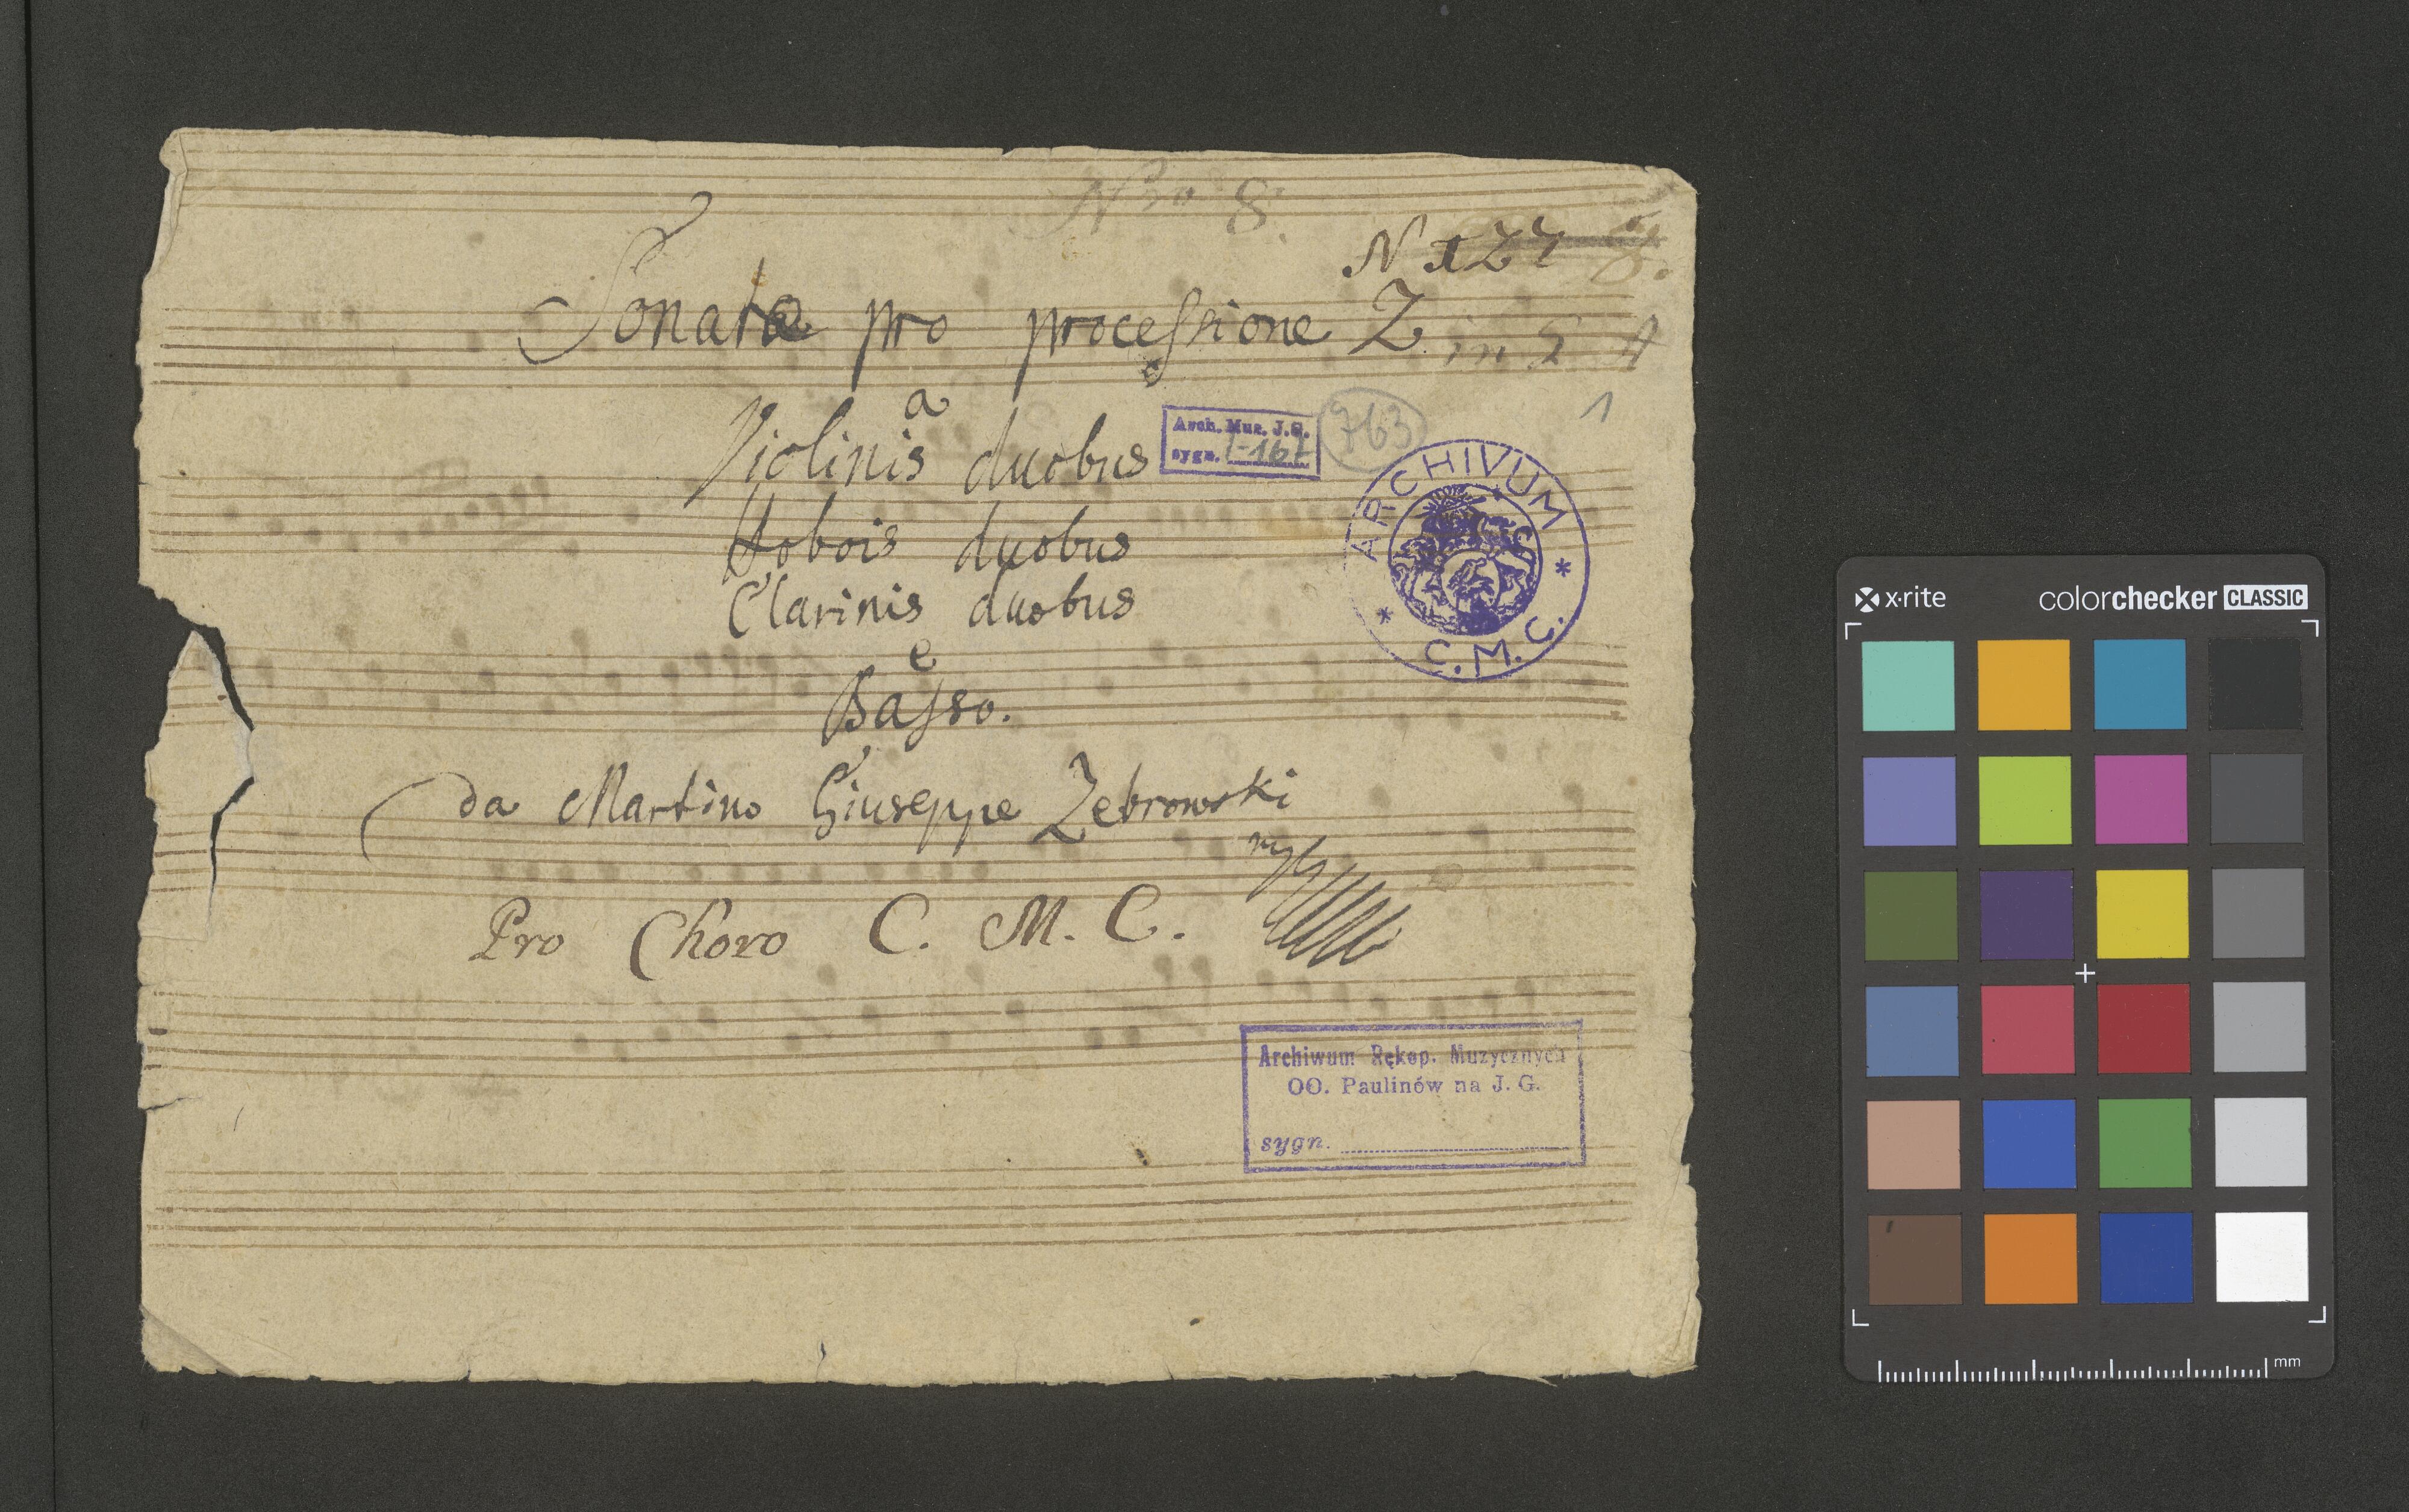 Nro 8.
N 127
8.
Sonatae pro processione 2
a
Violinis duobus
Hobois duobus
Clarinis duobus
e
Basso.
da Martino Giuseppe Zebrowski
Pro Choro C. M. C.
Arch. Muz. J.G.
sygn. I-167
763
1
ARCHIVUM
* C.M.C. *
Archiwum Rękop. Muzycznych
OO. Paulinów na J. G.
sygn.
x-rite
colorchecker CLASSIC
mm